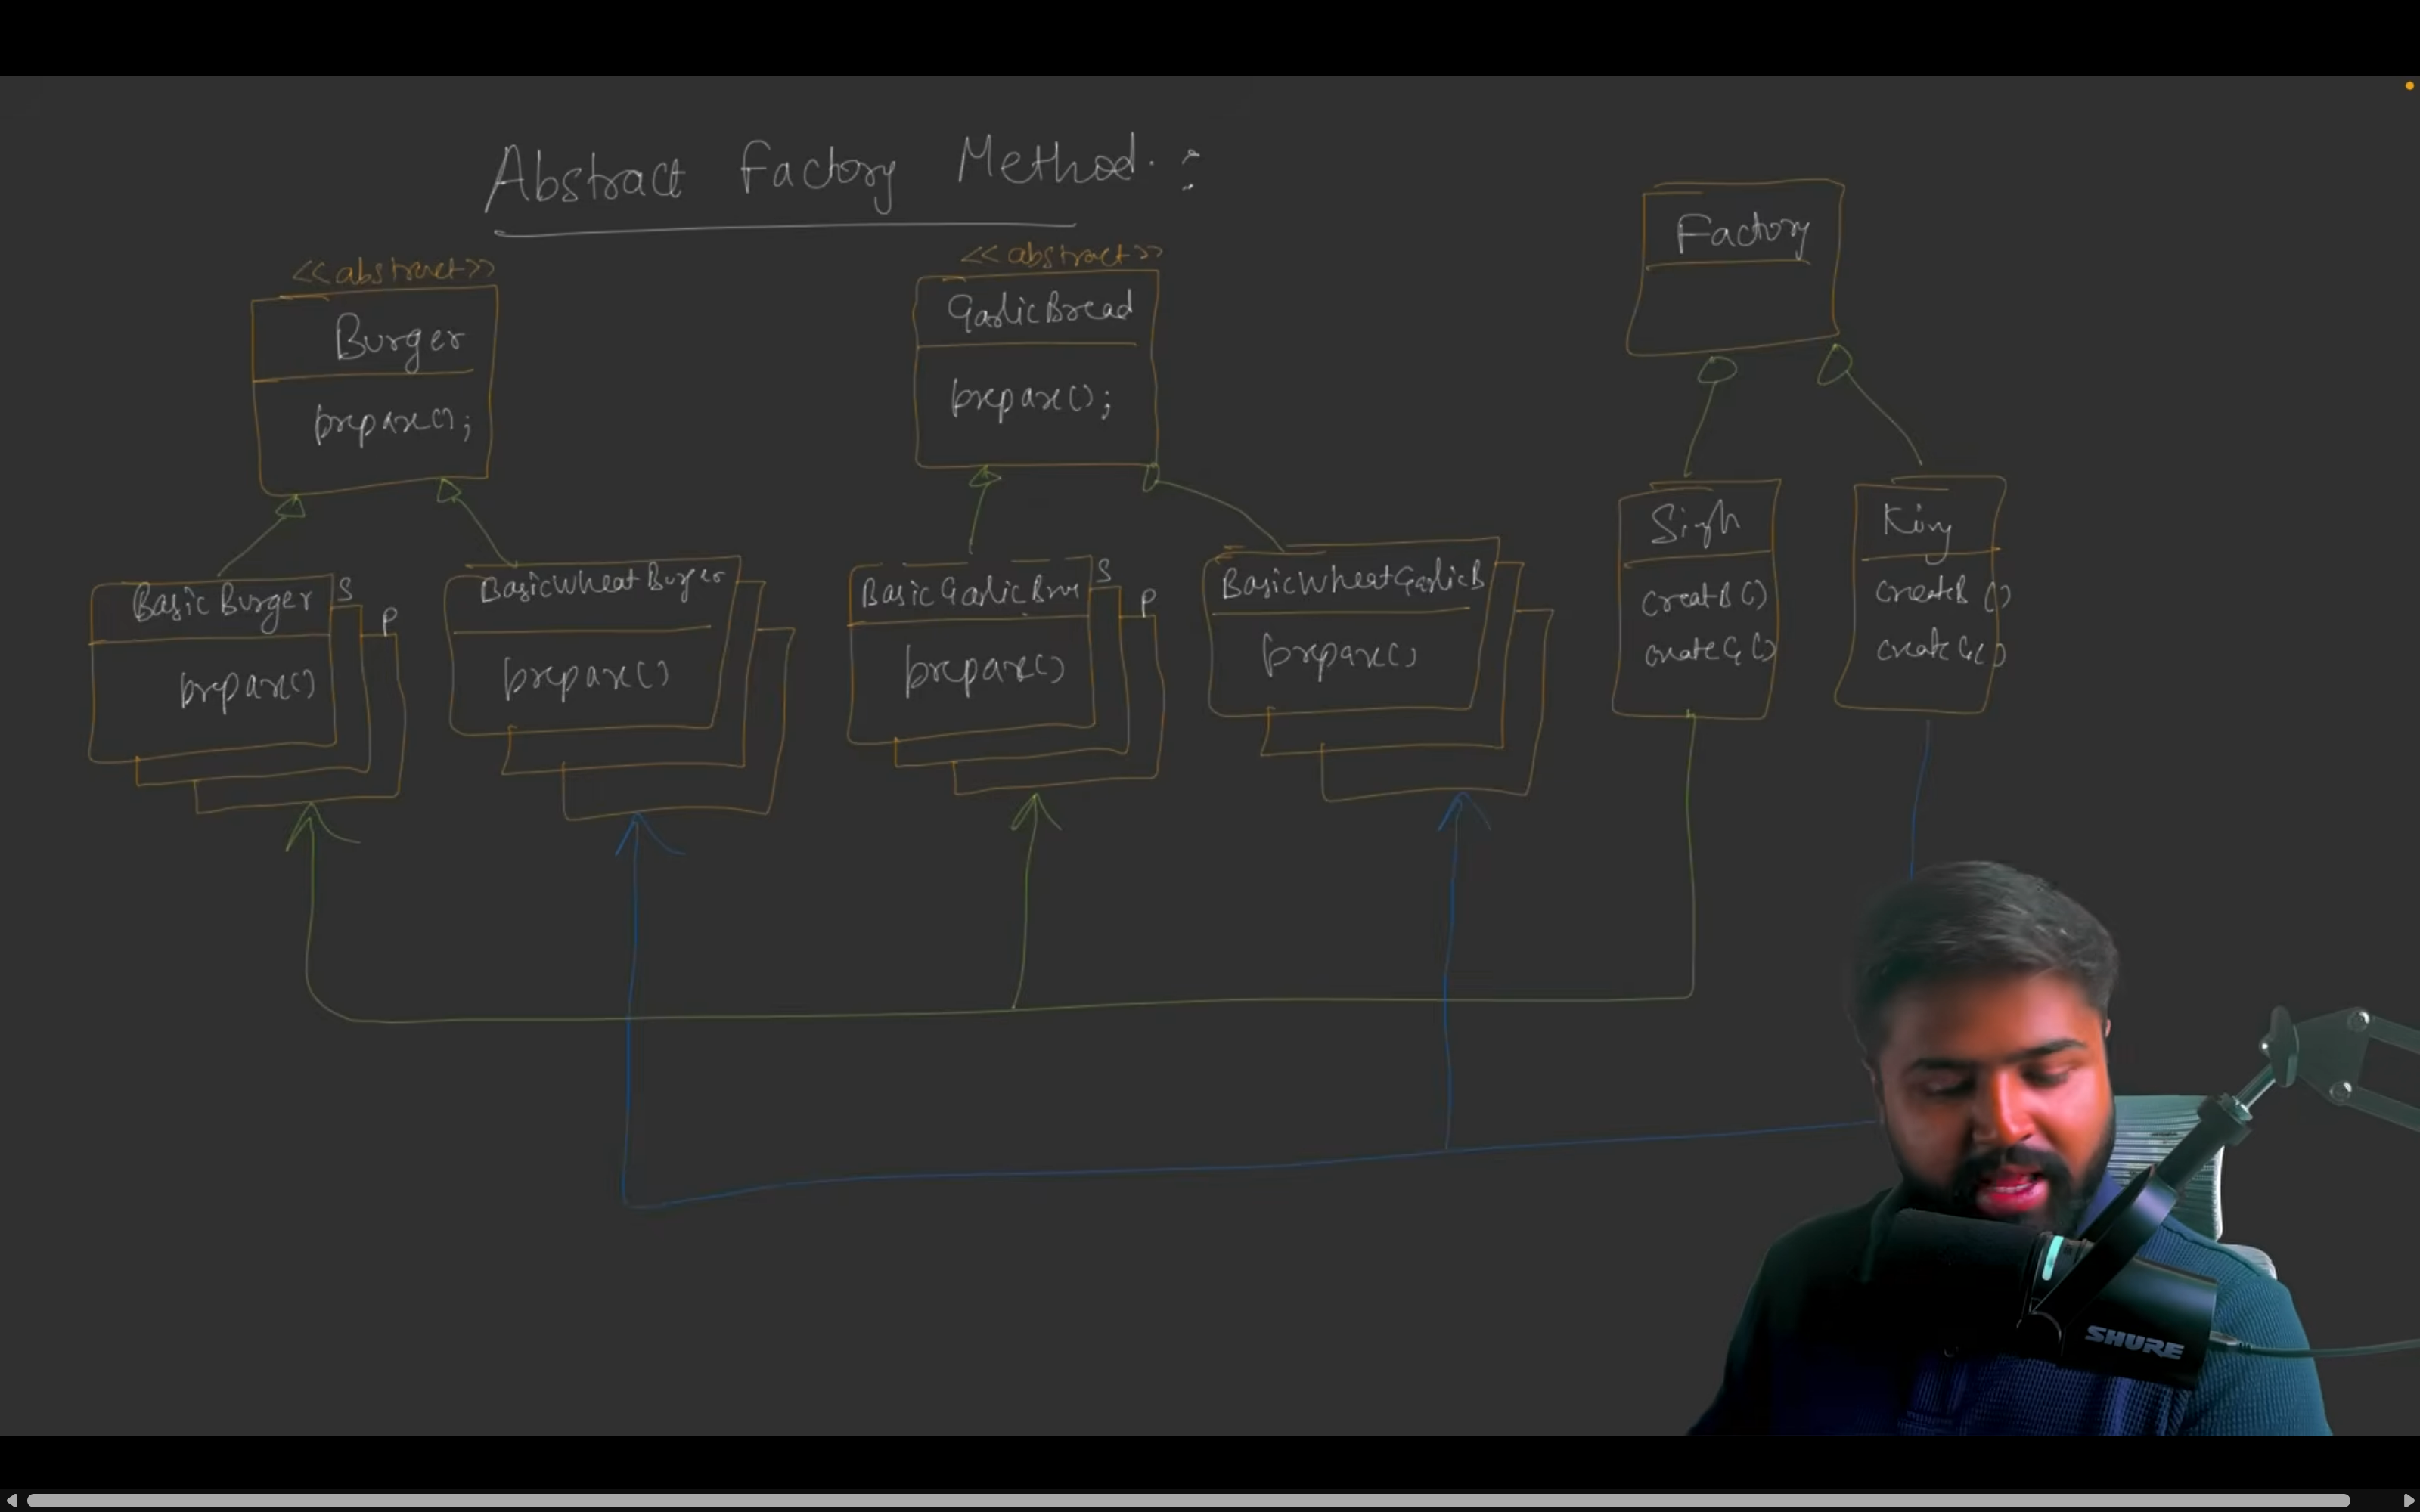 Abstract Factory Method :
<<abstract>>
Burger
prepare();
<<abstract>>
GarlicBread
prepare();
Factory
BasicBurger
prepare()
S
P
BasicWheatBurger
prepare()
BasicGarlicBre
prepare()
S
P
BasicWheatGarlicB
prepare()
Singh
creatB()
createG()
King
createB()
createG()
SHURE